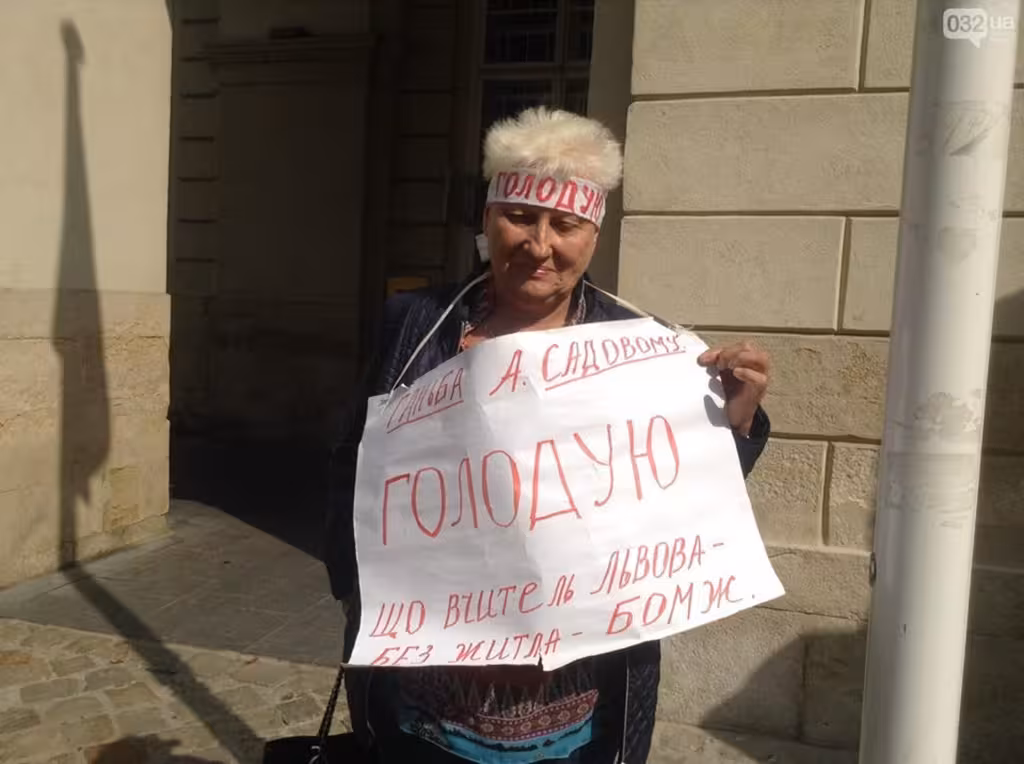 032.ua
ГОЛОДУЮ
ГАНЬБА А. САДОВОМУ
ГОЛОДУЮ
ЩО ВЧИТЕЛЬ ЛЬВОВА-
БЕЗ ЖИТЛА - БОМЖ.